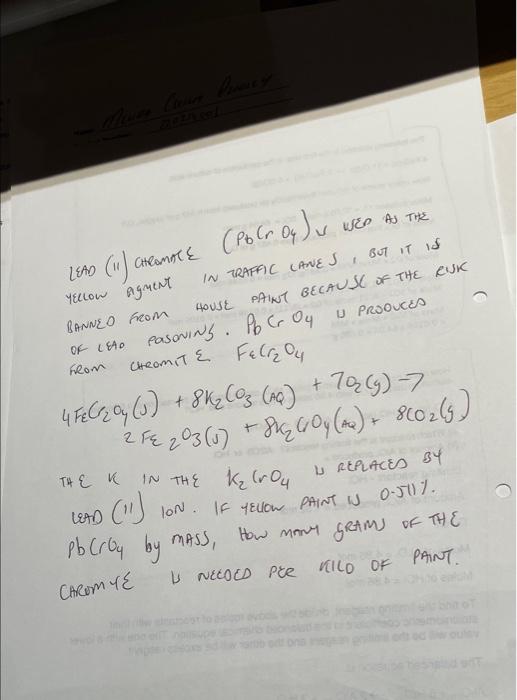 LEAD (II) CHROMATE (PbCrO4) IS USED AS THE
YELLOW PIGMENT IN TRAFFIC LANES, BUT IT IS
BANNED FROM HOUSE PAINT BECAUSE OF THE RISK
OF LEAD POISONING. PbCrO4 IS PRODUCED
FROM CHROMITE FeCr2O4
4FeCr2O4(s) + 8K2CO3(AQ) + 7O2(g) →
2FE2O3(s) + 8K2CrO4(AQ) + 8CO2(g)
THE K IN THE K2CrO4 IS REPLACED BY
LEAD (II) ION. IF YELLOW PAINT IS 0.511%
PbCrO4 by MASS, HOW MANY GRAMS OF THE
CHROMITE IS NEEDED PER KILO OF PAINT.